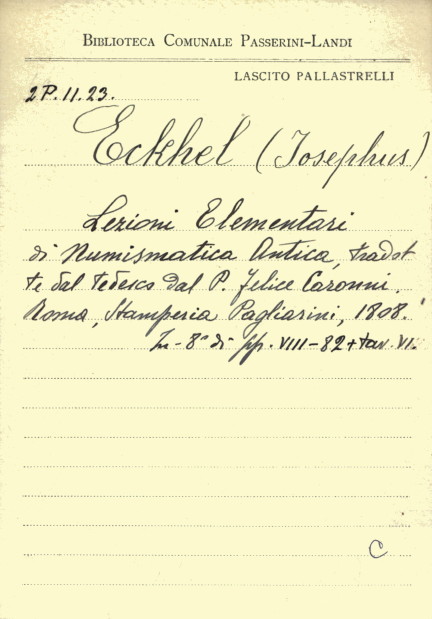 BIBLIOTECA COMUNALE PASSERINI-LANDI
LASCITO PALLASTRELLI
2P.11.23.
Eckhel (Josephus)
Lezioni Elementari
di Numismatica Antica, tradot
te dal tedesco dal P. Felice Caronni.
Roma, Stamperia Pagliarini, 1808.
In-8° di pp. VIII-82+tav. VI.
C